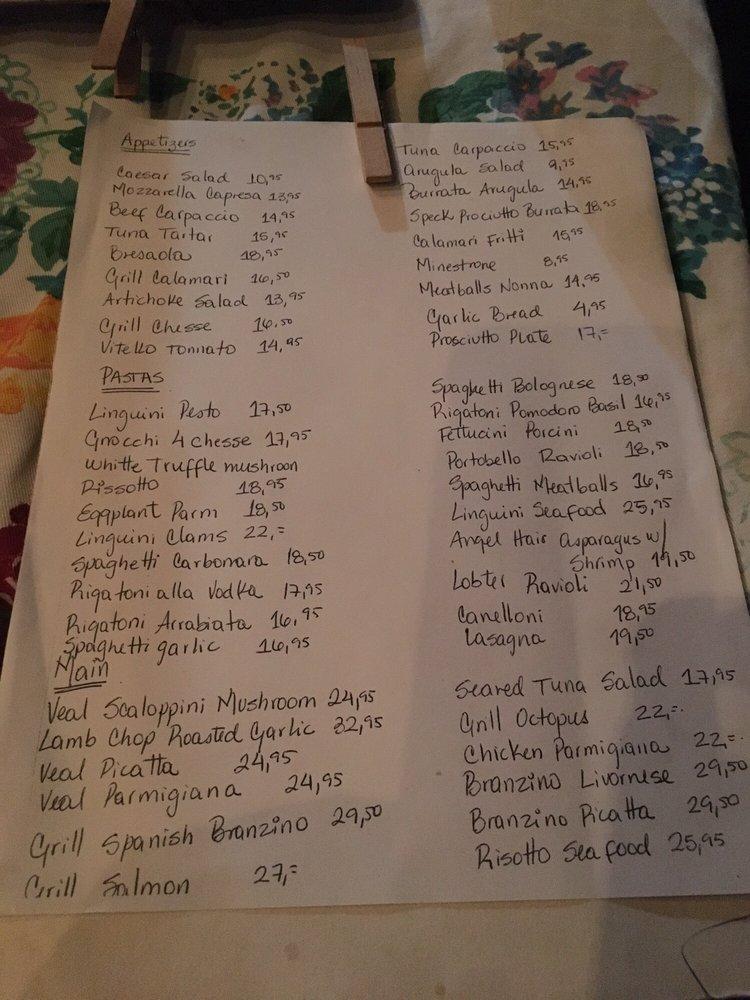 Appetizers
Caesar Salad 10,95
Mozzarella Capresa 13,95
Beef Carpaccio 14,95
Tuna Tartar 15,95
Bresaola 18,95
Grill Calamari 16,50
Artichoke Salad 13,95
Grill Chesse 16,50
Vitello Tonnato 14,95
Tuna Carpaccio 15,95
Arugula Salad 9,95
Burrata Arugula 14,95
Speck Prociutto Burrata 18,95
Calamari Fritti 15,95
Minestrone 8,95
Meatballs Nonna 14,95
Garlic Bread 4,95
Prosciutto Plate 17,=
PASTAS
Linguini Pesto 17,50
Gnocchi 4 chesse 17,95
Whitte Truffle mushroon
Rissotto 18,95
Eggplant Parm 18,50
Linguini Clams 22,=
Spaghetti Carbonara 18,50
Rigatoni alla Vodka 17,95
Rigatoni Arrabiata 16,95
Spaghetti garlic 16,95
Spaghetti Bolognese 18,50
Rigatoni Pomodoro Basil 16,95
Fettucini Porcini 18,50
Portobello Ravioli 18,50
Spaghetti Meatballs 16,95
Linguini Seafood 25,95
Angel Hair Asparagus w/
Shrimp 19,50
Lobter Ravioli 21,50
Canelloni 18,95
Lasagna 19,50
Main
Veal Scaloppini Mushroom 24,95
Lamb Chop Roasted Garlic 32,95
Veal Picatta 24,95
Veal Parmigiana 24,95
Grill Spanish Branzino 29,50
Grill Salmon 27,=
Seared Tuna Salad 17,95
Grill Octopus 22,=
Chicken Parmigiana 22,=
Branzino Livornese 29,50
Branzino Picatta 29,50
Risotto Seafood 25,95